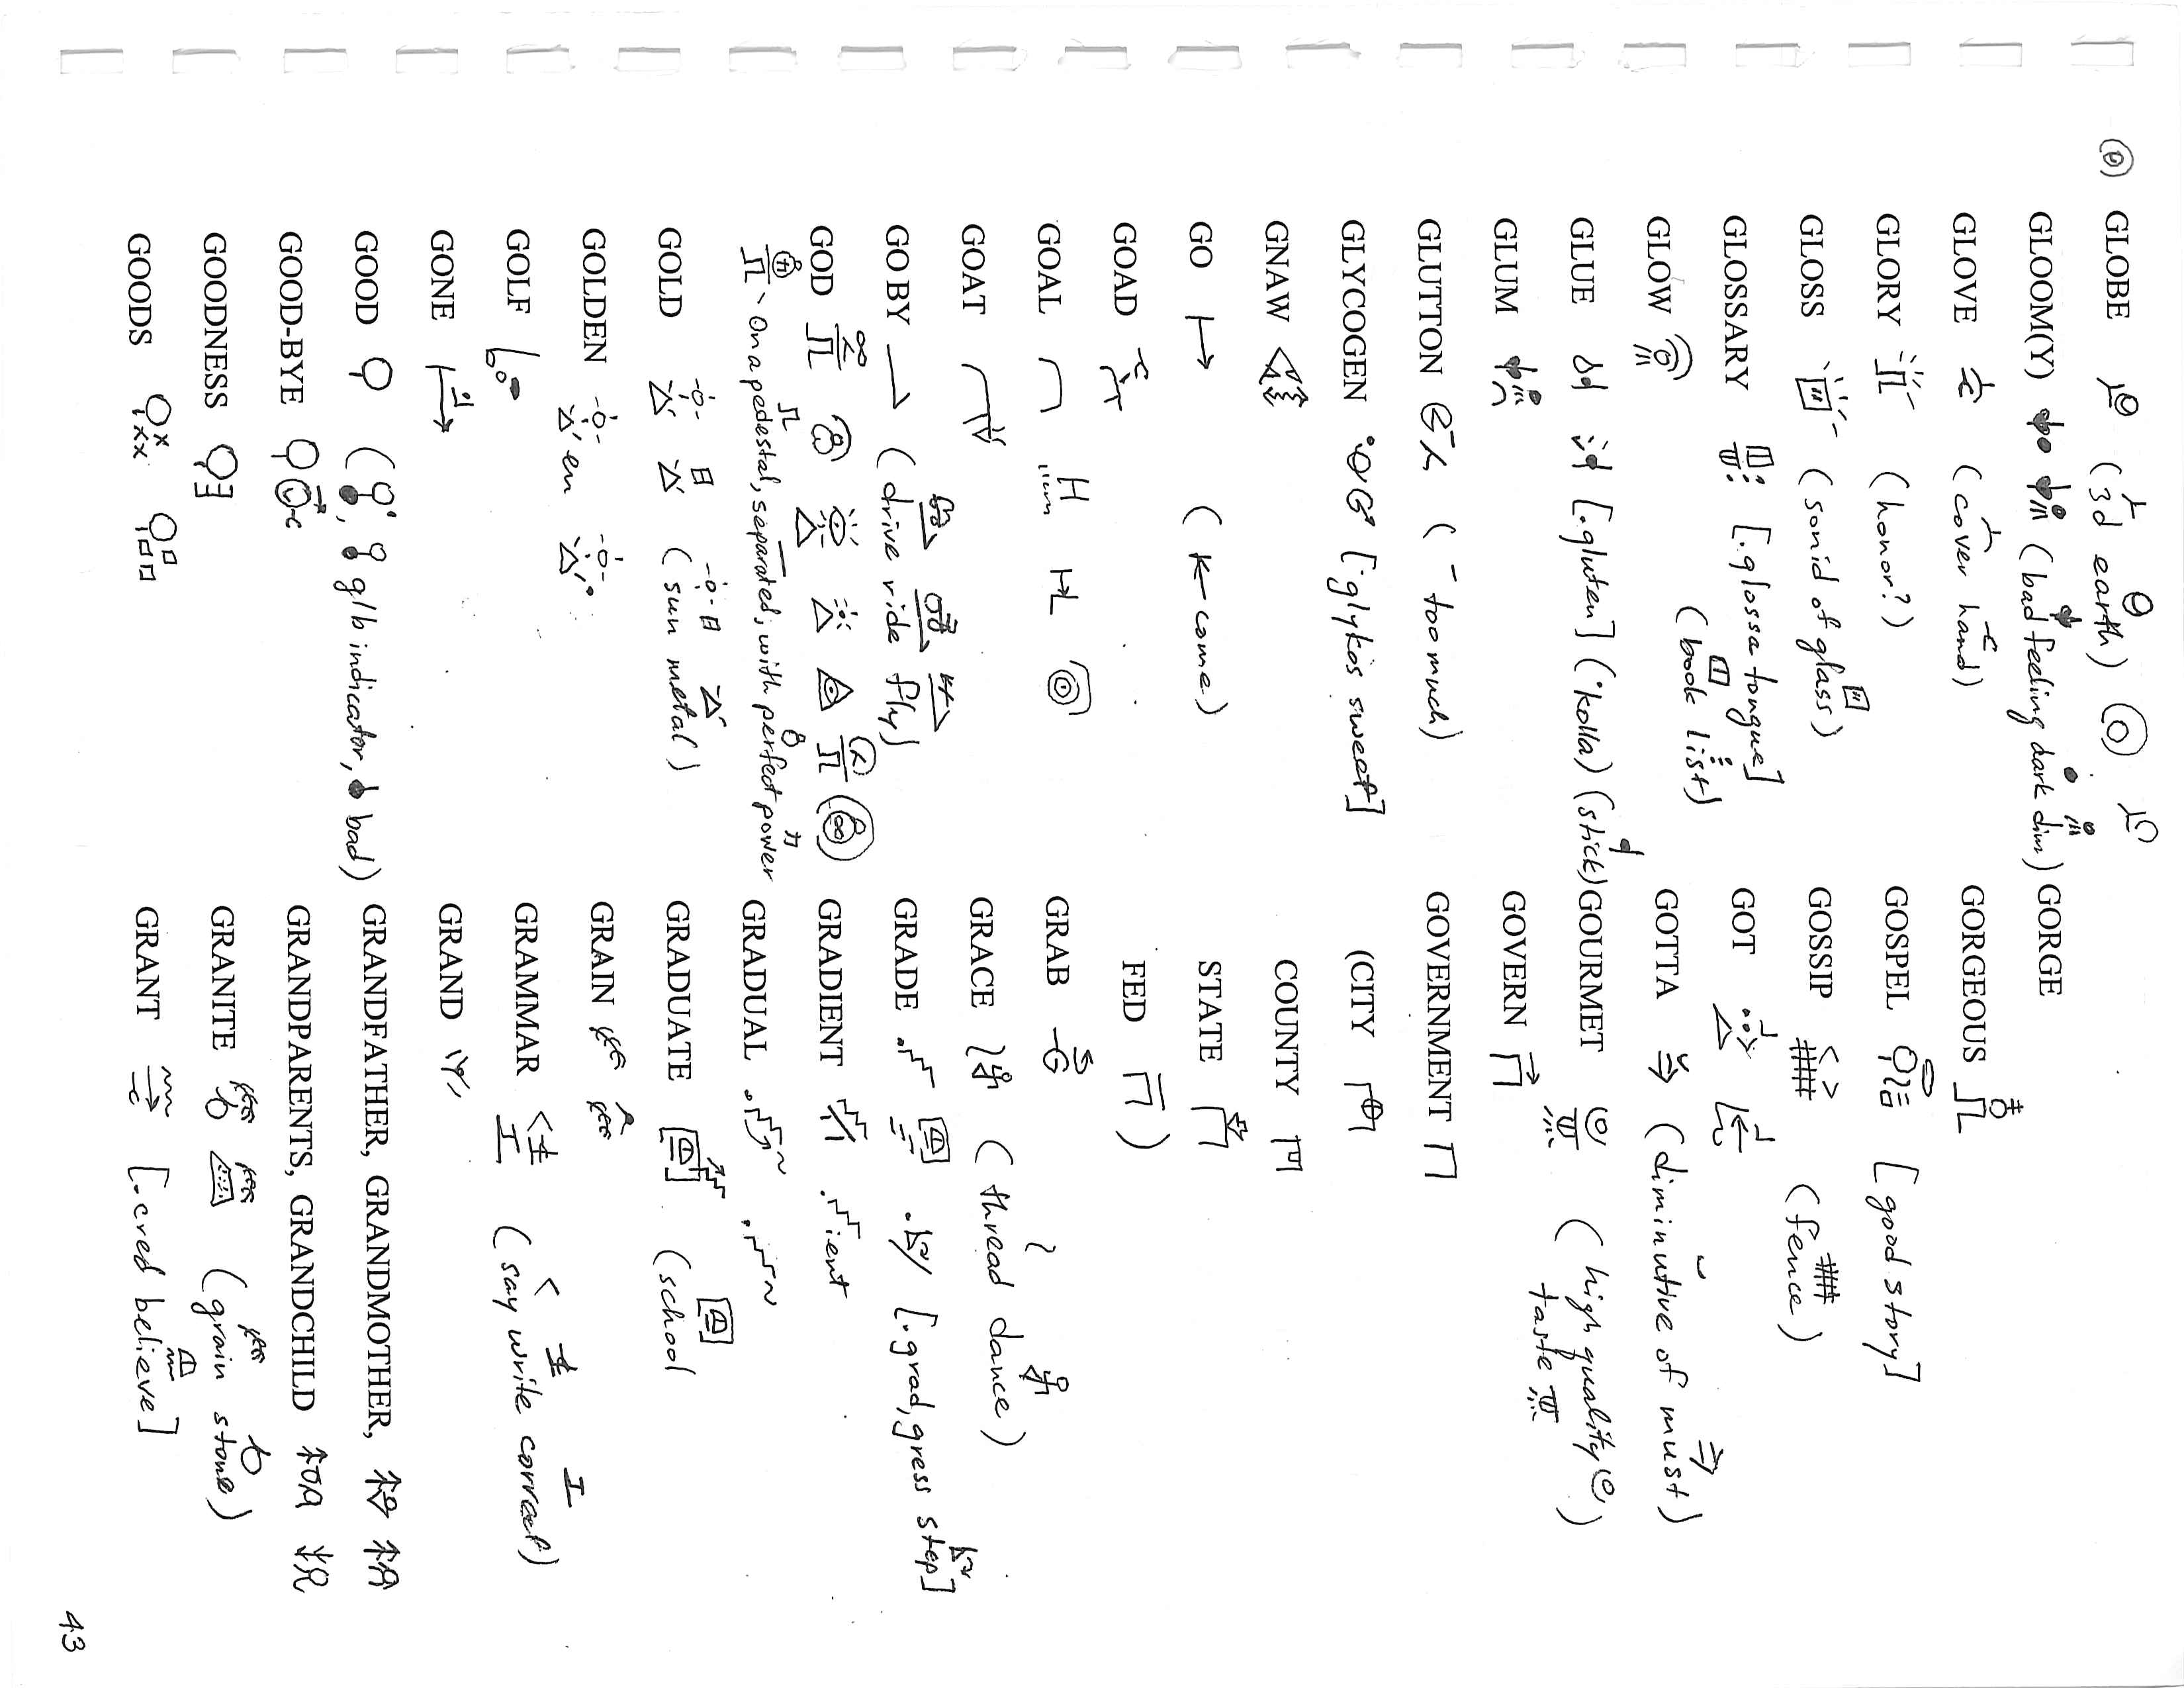 GLOBE (3d earth)
GLOOM(Y) (bad feeling dark dim)
GLOVE (cover hand)
GLORY (honor?)
GLOSS (sonid of glass)
GLOSSARY [.glossa tongue]
(book list)
GLOW
GLUE [.gluten] (·kolla) (stick)
GLUM
GLUTTON (– too much)
GLYCOGEN [.glykos sweet]
GNAW
GO (← come)
GOAD
GOAL
GOAT
GO BY (drive ride fly)
GOD
On a pedestal, separated, with perfect power
GOLD (sun metal)
GOLDEN en
GOLF
GONE
GOOD (g/b indicator, bad)
GOOD-BYE
GOODNESS
GOODS
GORGE
GORGEOUS
GOSPEL [good story]
GOSSIP (fence)
GOT
GOTTA (diminutive of must)
GOURMET (high quality)
taste
GOVERN
GOVERNMENT
(CITY
COUNTY
STATE
FED )
GRAB
GRACE (thread dance)
GRADE [.grad, gress step]
GRADIENT ient
GRADUAL
GRADUATE (school
GRAIN
GRAMMAR (say write correct)
GRAND
GRANDFATHER, GRANDMOTHER,
GRANDPARENTS, GRANDCHILD
GRANITE (grain stone)
GRANT [.cred believe]
43